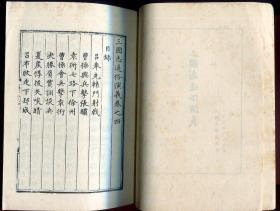 三國志通俗演義卷之四
目錄
呂奉先轅門射戟
曹操興兵擊張繡
袁術七路下徐州
曹操會兵擊袁術
決勝負賈詡談兵
夏侯惇拔矢啖睛
呂布敗走下邳城